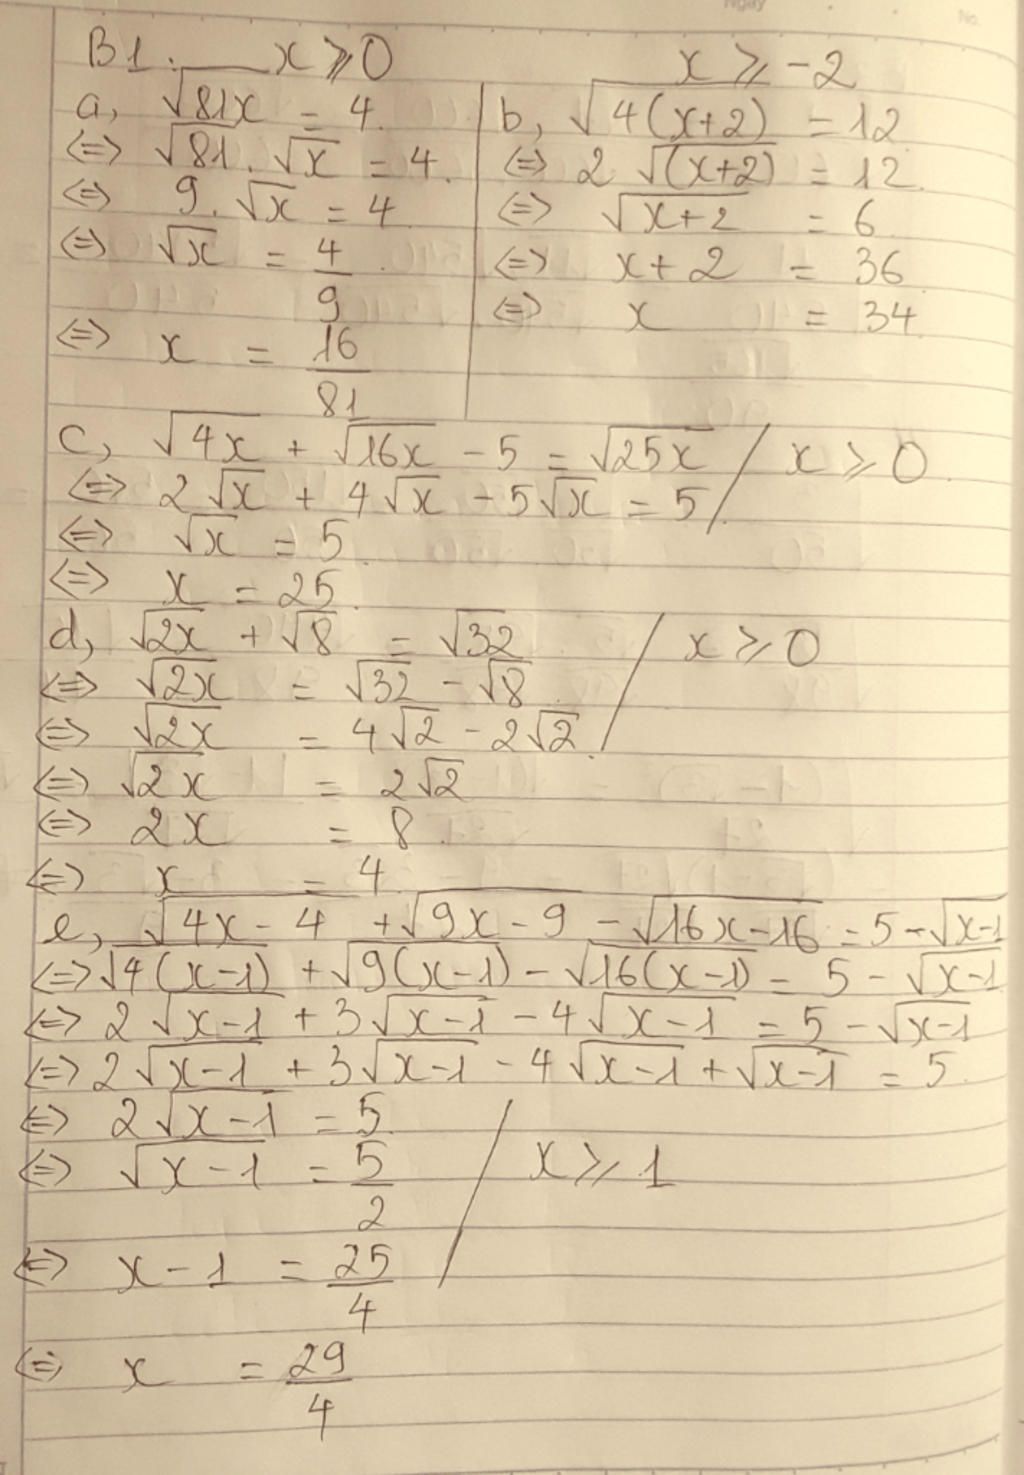 B1. x ⩾ 0
a, √81x = 4
⇔ √81 . √x = 4.
⇔ 9. √x = 4
⇔ √x = 4/9
⇔ x = 16/81
x ⩾ -2
b, √4(x+2) = 12
⇔ 2 √(x+2) = 12.
⇔ √x+2 = 6
⇔ x + 2 = 36
⇔ x = 34
c, √4x + √16x - 5 = √25x / x ⩾ 0
⇔ 2√x + 4√x - 5√x = 5
⇔ √x = 5
⇔ x = 25
d, √2x + √8 = √32 / x ⩾ 0
⇔ √2x = √32 - √8
⇔ √2x = 4√2 - 2√2
⇔ √2x = 2√2
⇔ 2x = 8
⇔ x = 4
e, √4x - 4 + √9x - 9 - √16x-16 = 5 - √x-1
⇔ √4(x-1) + √9(x-1) - √16(x-1) = 5 - √x-1
⇔ 2√x-1 + 3√x-1 - 4√x-1 = 5 - √x-1
⇔ 2√x-1 + 3√x-1 - 4√x-1 + √x-1 = 5
⇔ 2√x-1 = 5
⇔ √x-1 = 5/2 / x ⩾ 1
⇔ x - 1 = 25/4
⇔ x = 29/4